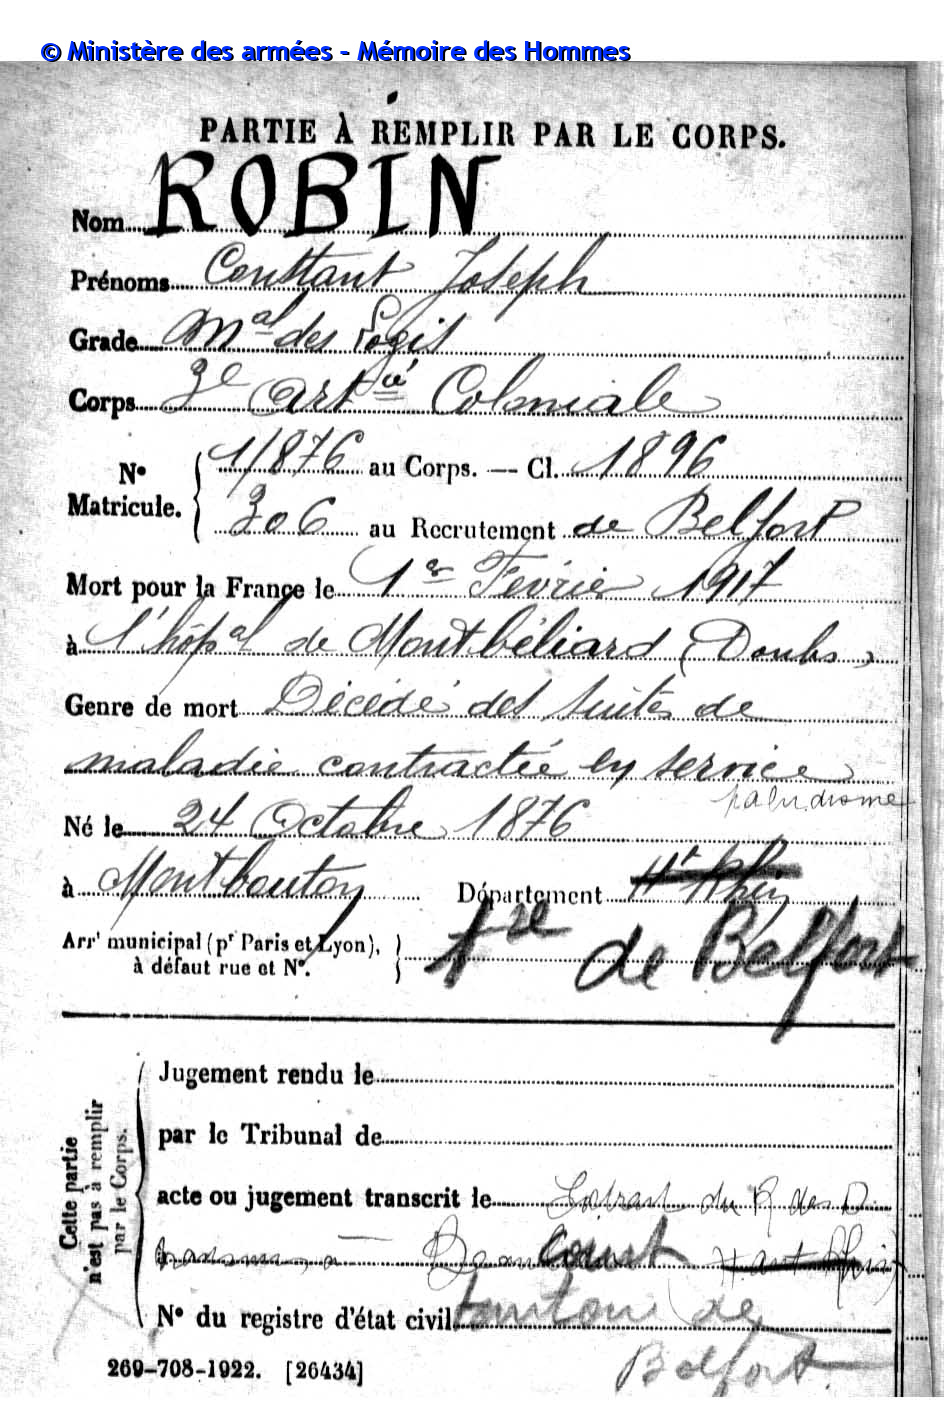 © Ministère des armées - Mémoire des Hommes
PARTIE À REMPLIR PAR LE CORPS.
Nom ROBIN
Prénoms Constant Joseph
Grade Mal des Logis
Corps 3e Artie Coloniale
No Matricule. { 1/876 au Corps. — Cl. 1896
306 au Recrutement de Belfort
Mort pour la France le 1er Février 1917
à l'hôpal de Montbéliard (Doubs)
Genre de mort Décédé des suites de
maladie contractée en service
paludisme
Né le 24 Octobre 1876
à Montbouton Département Ht Rhin
Arrt municipal (pr Paris et Lyon), à défaut rue et No. } Tre de Belfort
Cette partie n'est pas à remplir par le Corps.
Jugement rendu le
par le Tribunal de
acte ou jugement transcrit le Extrait du R des D
transmis à Beaucourt Haut Rhin
No du registre d'état civil territoire de
Belfort
269-708-1922. [26434]